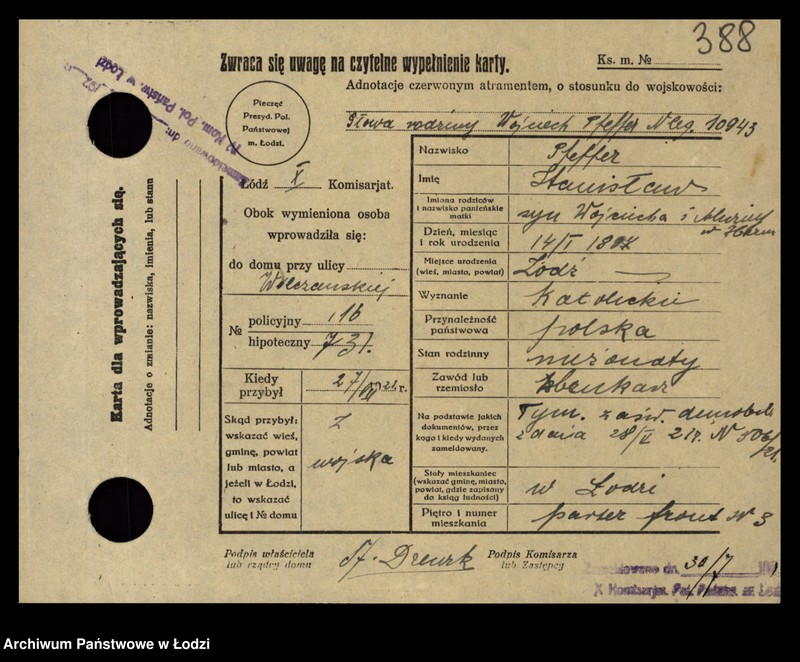 388
Zwraca się uwagę na czytelne wypełnienie karty.
Ks. m. №
Adnotacje czerwonym atramentem, o stosunku do wojskowości:
Głowa rodziny Wojciech Pfeffer N leg. 10943
Pieczęć
Prezyd. Pol.
Państwowej
m. Łodzi.
Łódź X Komisarjat.
Obok wymieniona osoba
wprowadziła się:
do domu przy ulicy
Wólczańskiej
№
policyjny 116
hipoteczny 731.
Kiedy
przybył
27/VII 21 r.
Skąd przybył:
wskazać wieś,
gminę, powiat
lub miasto, a
jeżeli w Łodzi,
to wskazać
ulicę i № domu
z
wojska
Nazwisko
Pfeffer
Imię
Stanisław
Imiona rodziców
i nazwisko panieńskie
matki
syn Wojciecha i
Dzień, miesiąc
i rok urodzenia
14/I
Miejsce urodzenia
(wieś, miasto, powiat)
Łódź
Wyznanie
Katolickie
Przynależność
państwowa
polska
Stan rodzinny
nieżonaty
Zawód lub
rzemiosło
Na podstawie jakich
dokumentów, przez
kogo i kiedy wydanych
zameldowany.
Tym. zaśw. demobil.
z dnia 28/V 21 r. N
Stały mieszkaniec
(wskazać gminę, miasto,
powiat, gdzie zapisany
do ksiąg ludności)
w Łodzi
Piętro i numer
mieszkania
parter front N 3
Podpis właściciela
lub rządcy domu
Podpis Komisarza
lub Zastępcy
dn. 30/7
X Komisarjat Pol. Państw. m. Łodzi
Karta dla wprowadzających się.
Adnotacje o zmianie: nazwiska, imienia, lub stanu
Kom. Pol. Państw. w Łodzi
Archiwum Państwowe w Łodzi